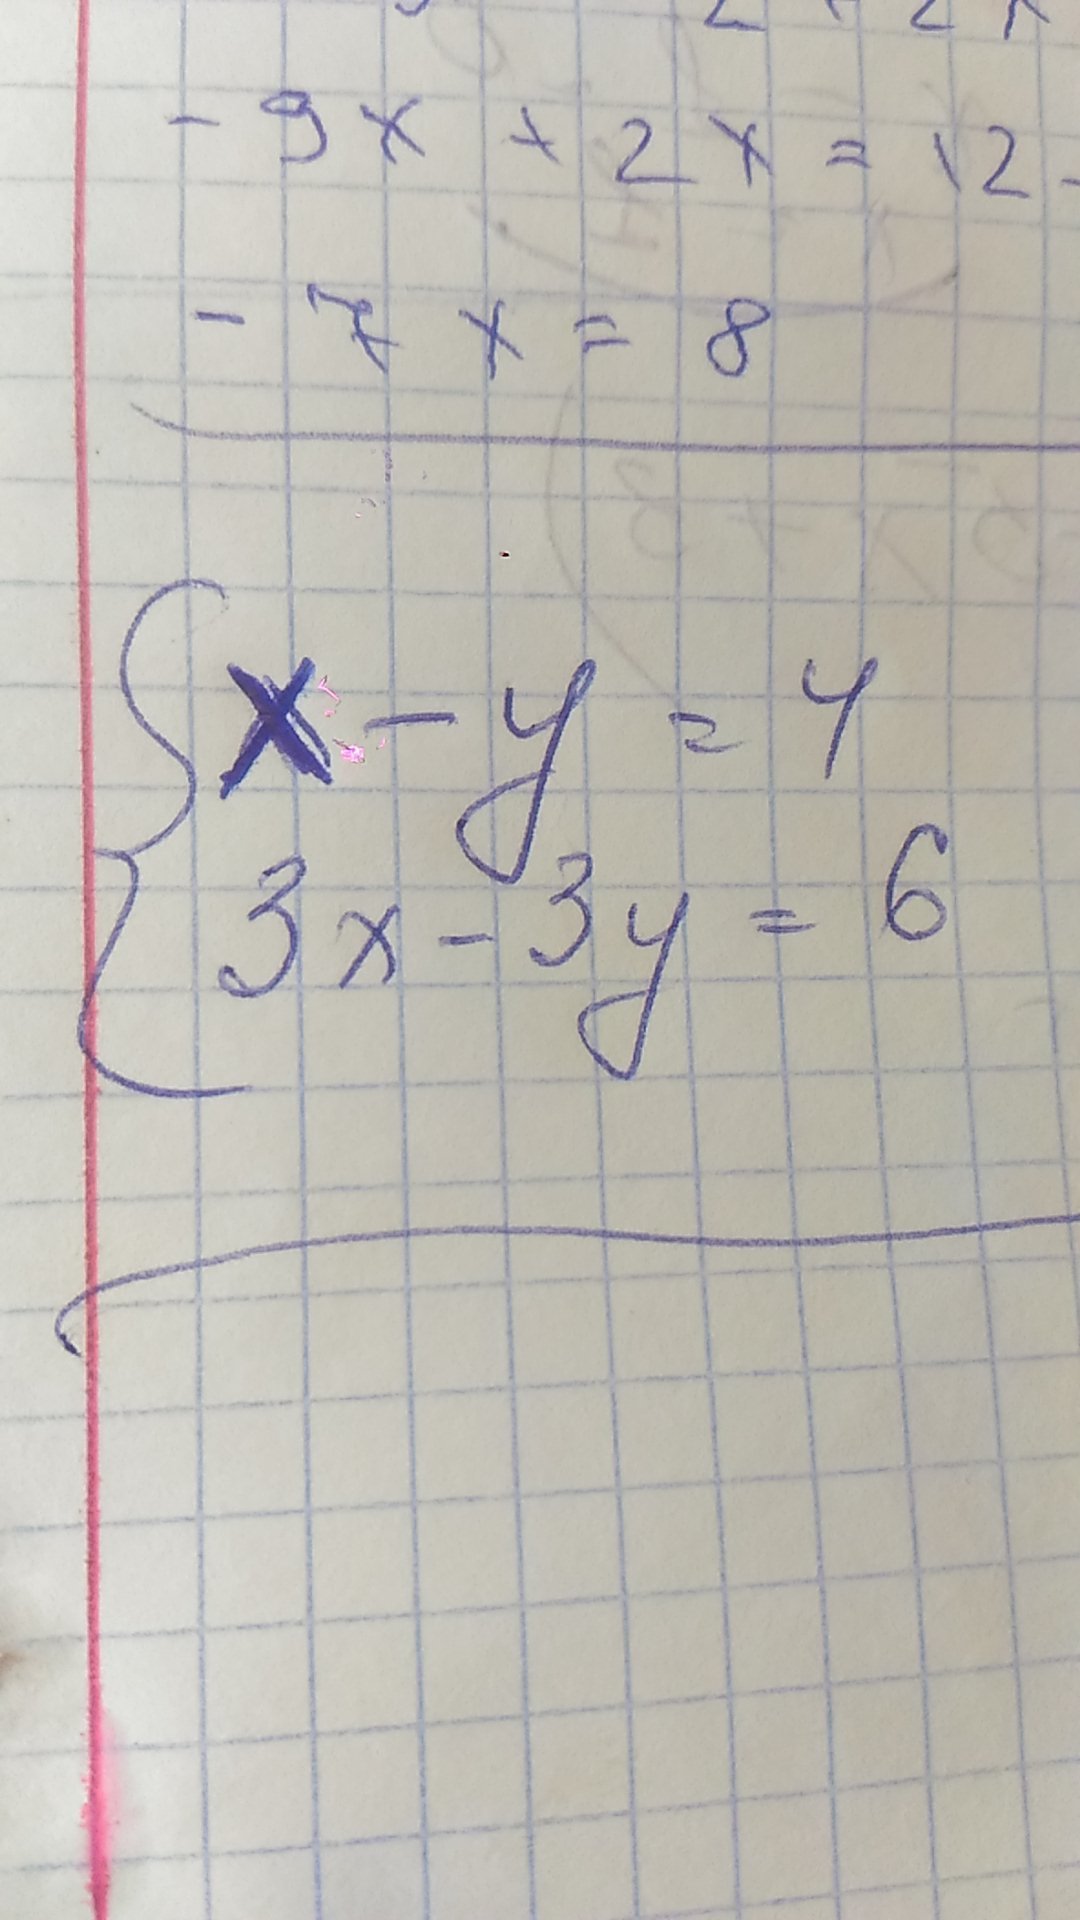 - 9x + 2x = 12 -
- 7x = 8
x - y = 4
3x - 3y = 6